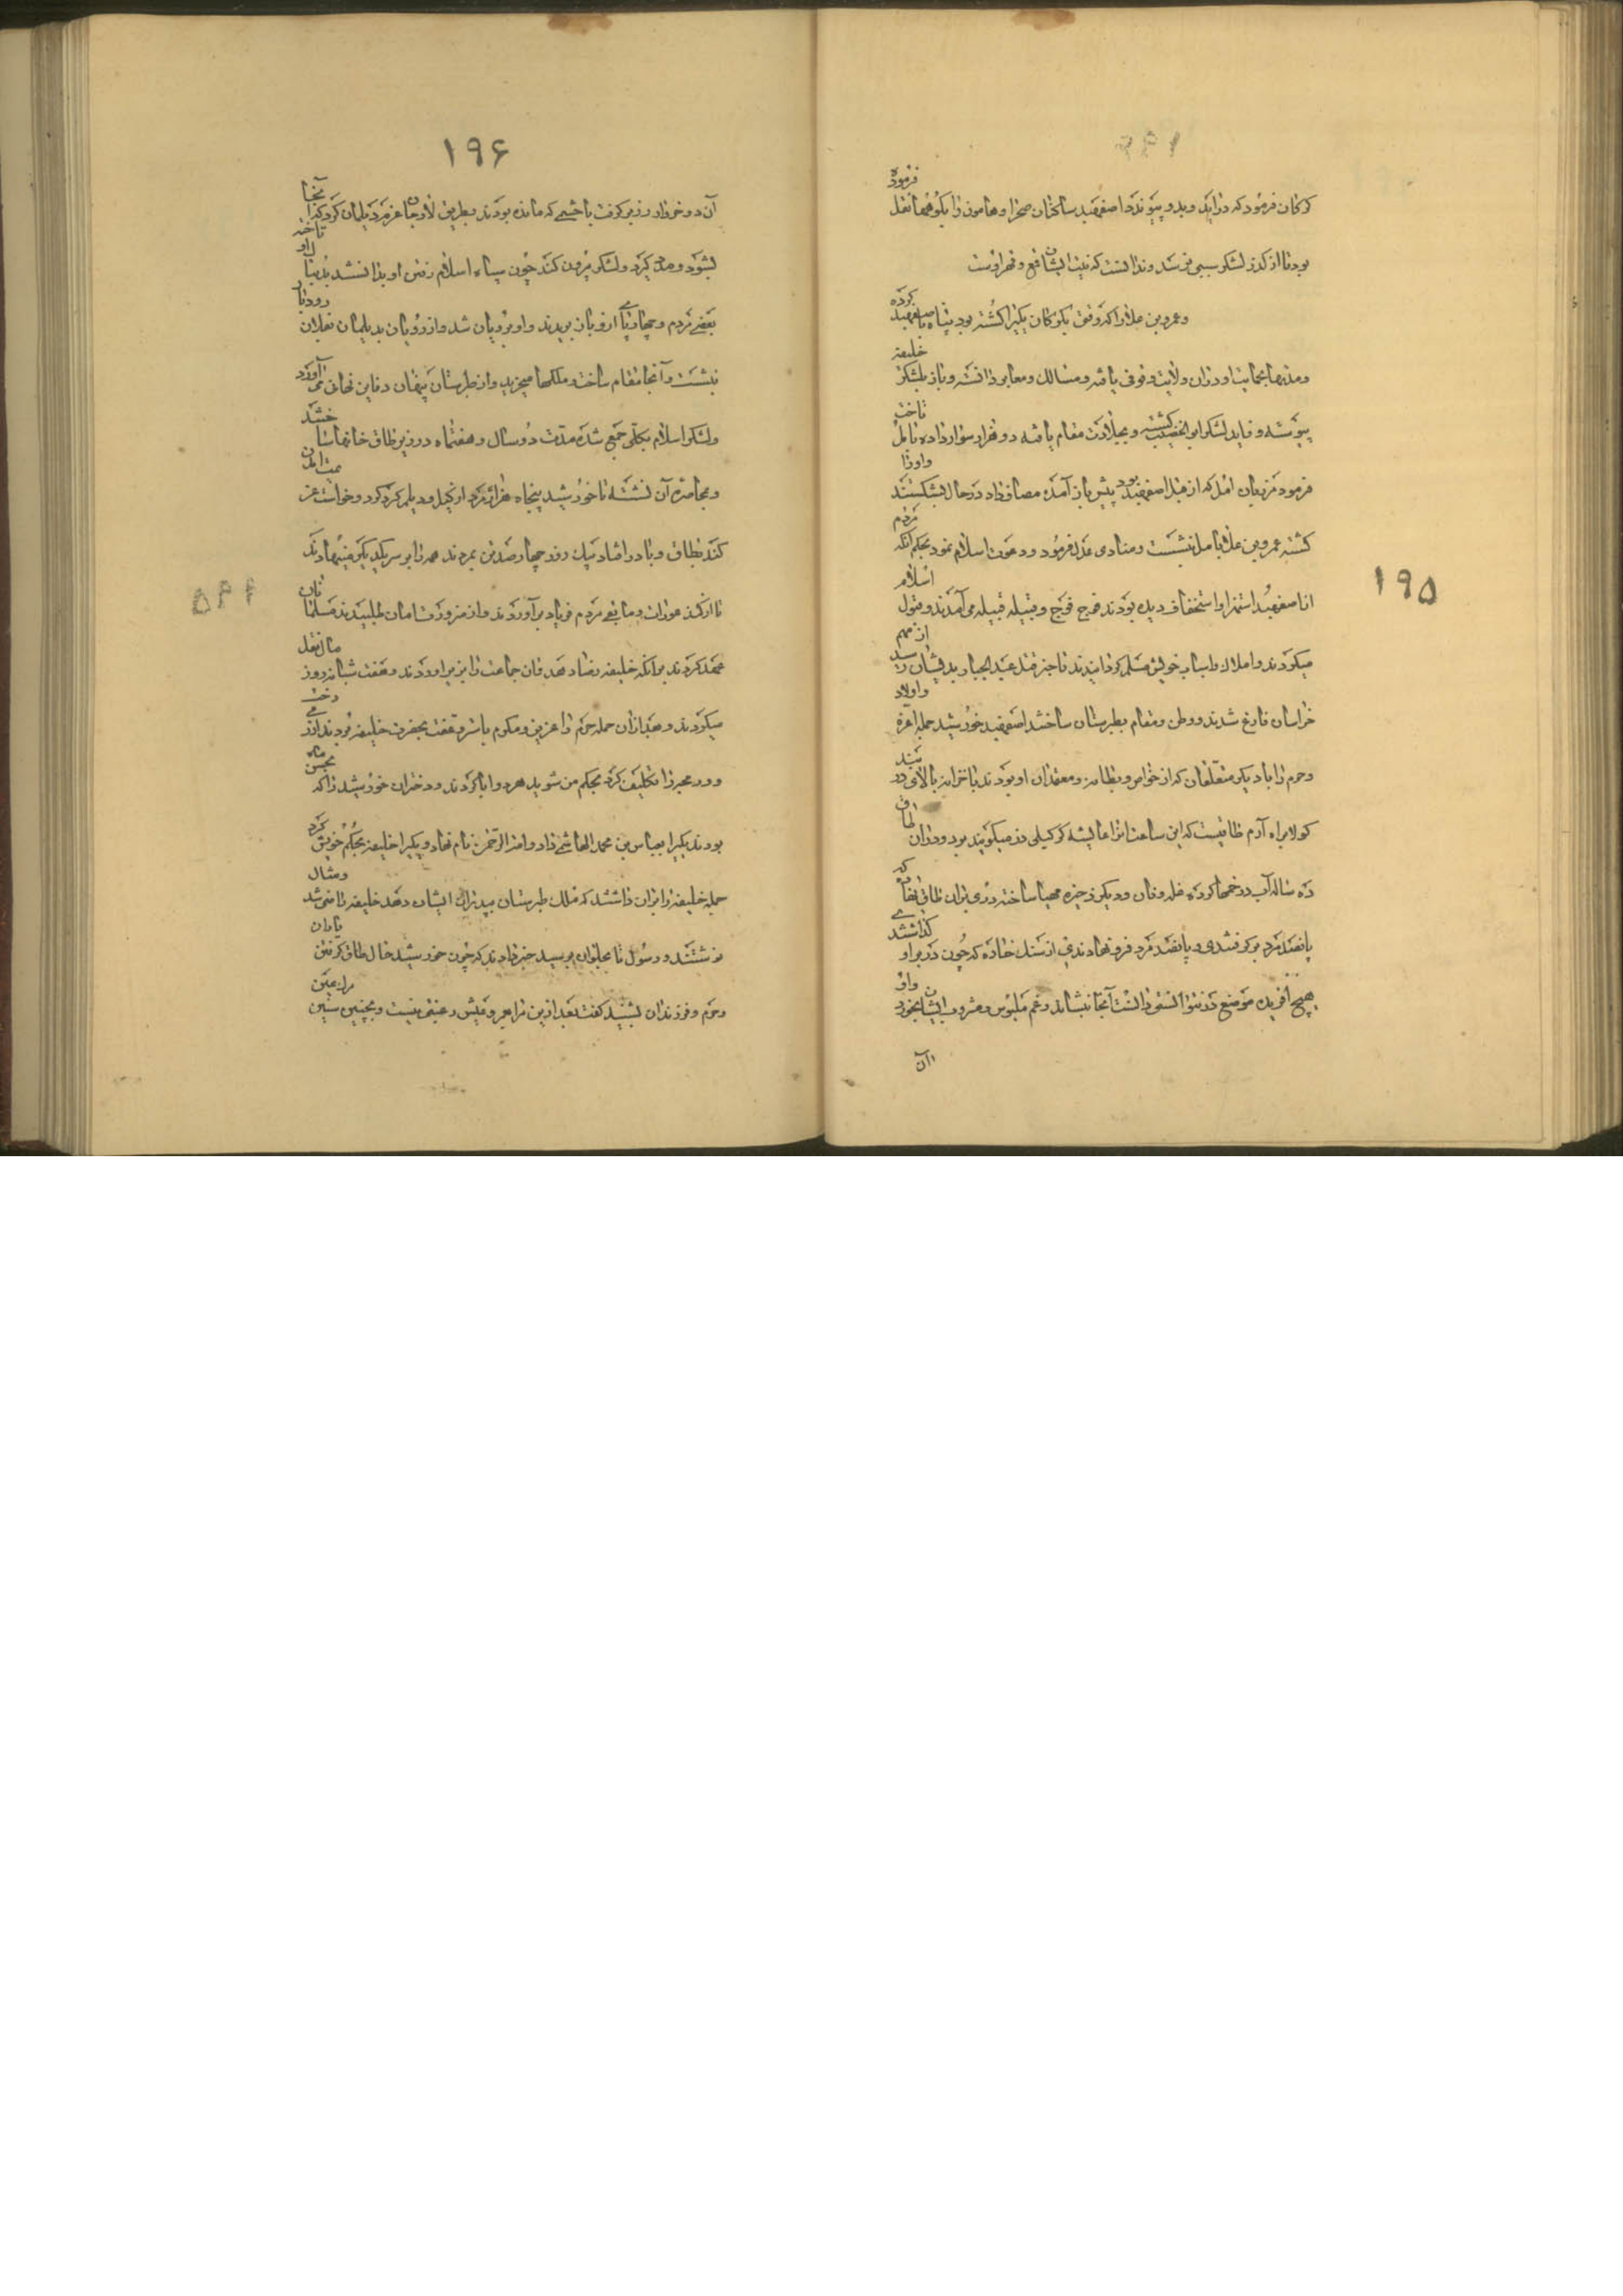 ۱۹۵
کرکان فرمود که درآید و بدو پیوندد اصفهبد ساکنان صحرا و هامون را بکوهها نقل فرموده
بود تا از کذر لشکر سیبی نرسد و ندانست که نیت ایشان فتح و قهر اوست
و عمرو بن علا را که وقتی بکرکان یکیرا کشته بود پناه با اصفهبد کرده
و مدتها بحمایت او دران ولایت وقوف یافته و مسالك و معابر دانسته و باز بلشکر خلیفه
پیوسته و قاید لشکر ابو الخصیب کشته و بجلادت مقام یافته دو هزار سوار داده تا بآمل تاختن
فرمود مرزبان آمل که از قبل اصفهبد بود پیش باز آمده مصاف داد در حال بشکستند و او را
کشته عمرو بن علا بآمل بنشست و منادی عدل فرمود و دعوت اسلام نمود بحکم آنکه مردم
از اصفهبد استهزا و استخفاف دیده بودند فوج فوج و قبیله قبیله می آمدند و قبول اسلام
میکردند و املاك و اسباب خویش مسلم کردانیدند تا خبر قتل عبد الجبار بدیشان رسید از مهم
خراسان فارغ شدند و وطن و مقام بطبرستان ساختند اصفهبد خورشید جمله اعزه و اولاد
و حرم را با دیکر متعلقان که از خواص و بطانه و معتمدان او بودند با خزاین بالای دربند
کولا براه آرم طاقیست که این ساعت انرا عایشه کرکیلی دز میکویند بود و دران طاق
ده ساله آب در خمها کرده و غله و نان و دیکر ذخیره مهیا ساخته و دری بران طاق نهاده که
پانصد مرد بر کرفتندی و پانصد مرد فرو نهادندی از سنك خاره که چون در بر او کذاشتندی
هیچ آفریده موضع در نتوانستی دانست آنجا بنشاند و غم ملبوس و مشروب ایشان بخورد و او
از آن
۱۹۶
آن دوخروار زر بر کرفت با حشمی که مانده بودند بطریق لارجان عزم دیلمان کرد که آنجا
بشود و مدد کیرد و لشکر بیرون کند چون سپاه اسلام رفتن او بدانستند بدنبال او تاختند
بعضی مردم و چهارپای ازو باز بریدند و او برویان شد و از رویان بدیلمان بفلام رودبار
بنشست و آنجا مقام ساخت و ملکها میخرید و از طبرستان پنهان دفاین نهانی می آورد
و لشکر اسلام بکلی جمع شده مدت دو سال و هفتماه در زیر طاق خانها ساختند
و بمحاصره آن نشسته تا خورشید پنجاه هزار مرد از کیل و دیلم کرد کرد و خواست عزیمت آمدن
کند بطاق وبا در افتاد بیك روز چهارصد تن بمردند همه را بر سر یکدیکر مینهادند
تا از کند موران و مابقی مردم فریاد برآوردند و از ضرورت امان طلبیدند مسلمانان
عهد کردند بر آنکه خلیفه رضا دهد فان جماعت را بزیر آوردند و هفت شبانه روز مال نقل
میکردند و بعد از آن جمله حرم را عزیز و مکرم با سرو قفت بحضرت خلیفه بودند ازر می دخت
و ورمجه را تکلیف کرد بحکم من شوید هردو ابا کردند و دختران خورشید را که بحسن ماه
بودند یکیرا بعباس بن محمد الهاشمی داد و امة الرحمن نام نهاد و یکیرا خلیفه بحکم خویش کرد
جمله خلیفه را بران داشتند که ملك طبرستان بپدر ایشان دهد خلیفه راضی شد و مثال
نوشتند و رسول تا بحلوان برسید خبر دادند که چون خورشید حال طاق کرفتن یاران
و حرم و فرزندان بشنید کفت بعد ازین مرا بعمر و عیش رغبتی نیست و بچنین شین مرا عین